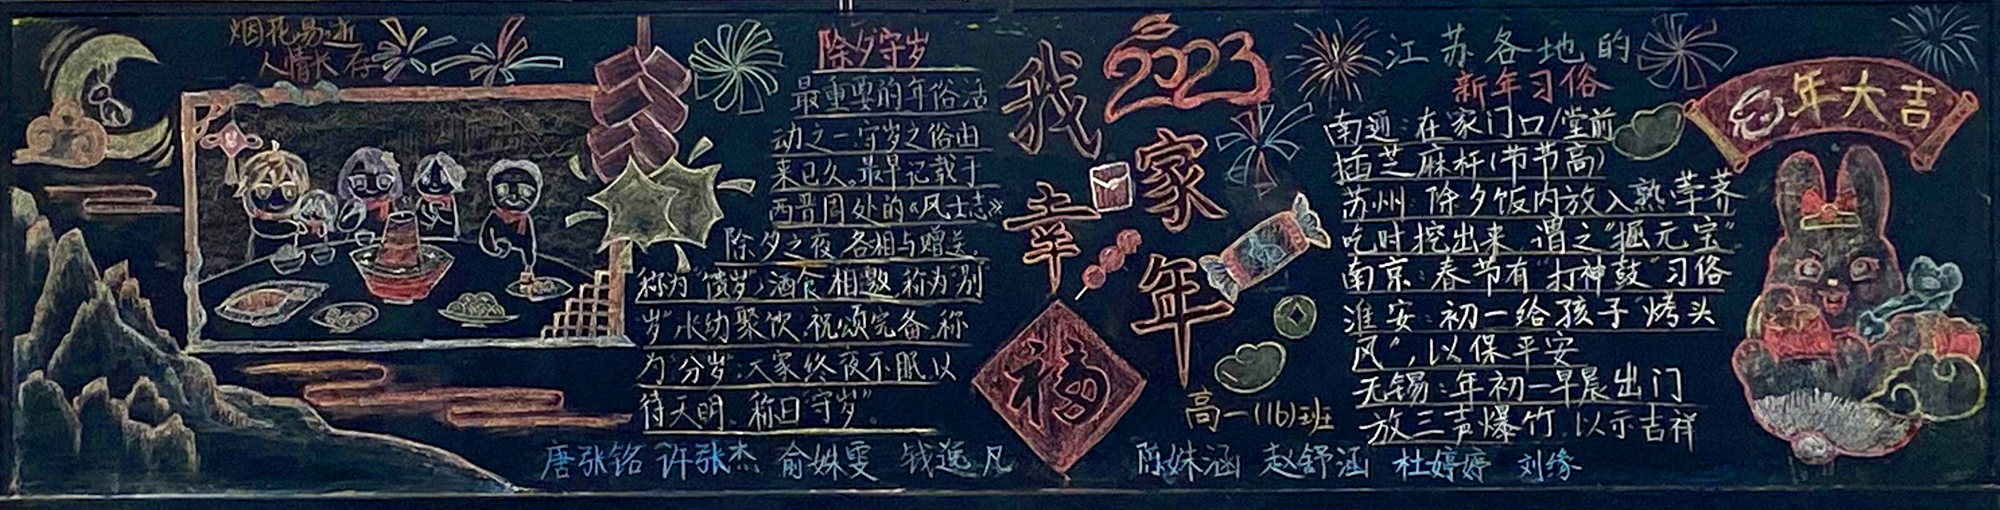 烟花易逝
人情长存
除夕守岁
最重要的年俗活
动之一守岁之俗由
来已久。最早记载于
西晋周处的《风土志》
除夕之夜各相与赠送。
称为"馈岁",酒食相邀,称为"别
岁"长幼聚饮,祝颂完备,称
为"分岁",大家终夜不眠,以
待天明、称曰"守岁"。
2023
我家
幸福年
高一(16)班
江苏各地的
新年习俗
南通:在家门口/堂前
插芝麻杆(节节高)
苏州:除夕饭内放入熟荸荠
吃时挖出来,谓之"掘元宝"
南京:春节有"打神鼓"习俗
淮安:初一给孩子"烤头
风",以保平安
无锡:年初一早晨出门
放三声爆竹,以示吉祥
年大吉
唐张铭 许张杰 俞姝雯 钱逸凡 陈姝涵 赵舒涵 杜婷婷 刘缘